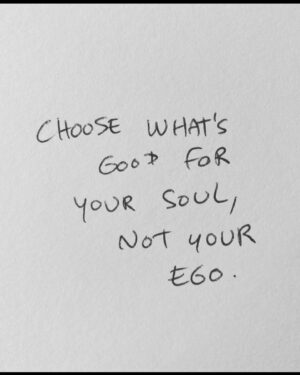 CHOOSE WHAT'S
GOOD FOR
YOUR SOUL,
NOT YOUR
EGO.